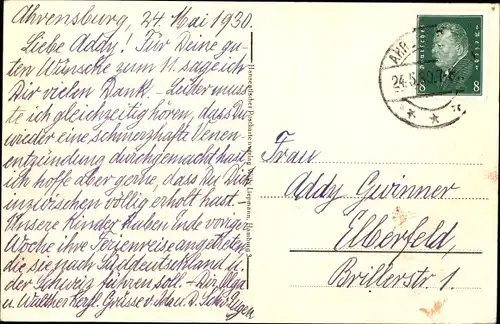 Ahrensburg, 24. Mai 1930.
Liebe Addy! Für Deine gu-
ten Wünsche zum 11. sage ich
Dir vielen Dank. – Leider muss-
te ich gleichzeitig hören, dass Du
wieder eine schmerzhafte Venen-
entzündung durchgemacht hast,
ich hoffe aber gerne, dass Du Dich
inzwischen völlig erholt hast. –
Unsere Kinder haben Ende voriger
Woche ihre Ferienreise angetreten,
die sie nach Süddeutschland u.
der Schweiz führen soll. – Dir, Olga
u. Walther herzl. Grüsse v. Max u. D.
Hanseatischer Postkartenverlag Hamburg 3
Deutsches Reich
8 8
AHR
24.5.30.7
Frau
Addy Gwinner
Elberfeld,
Brillerstr. 1.